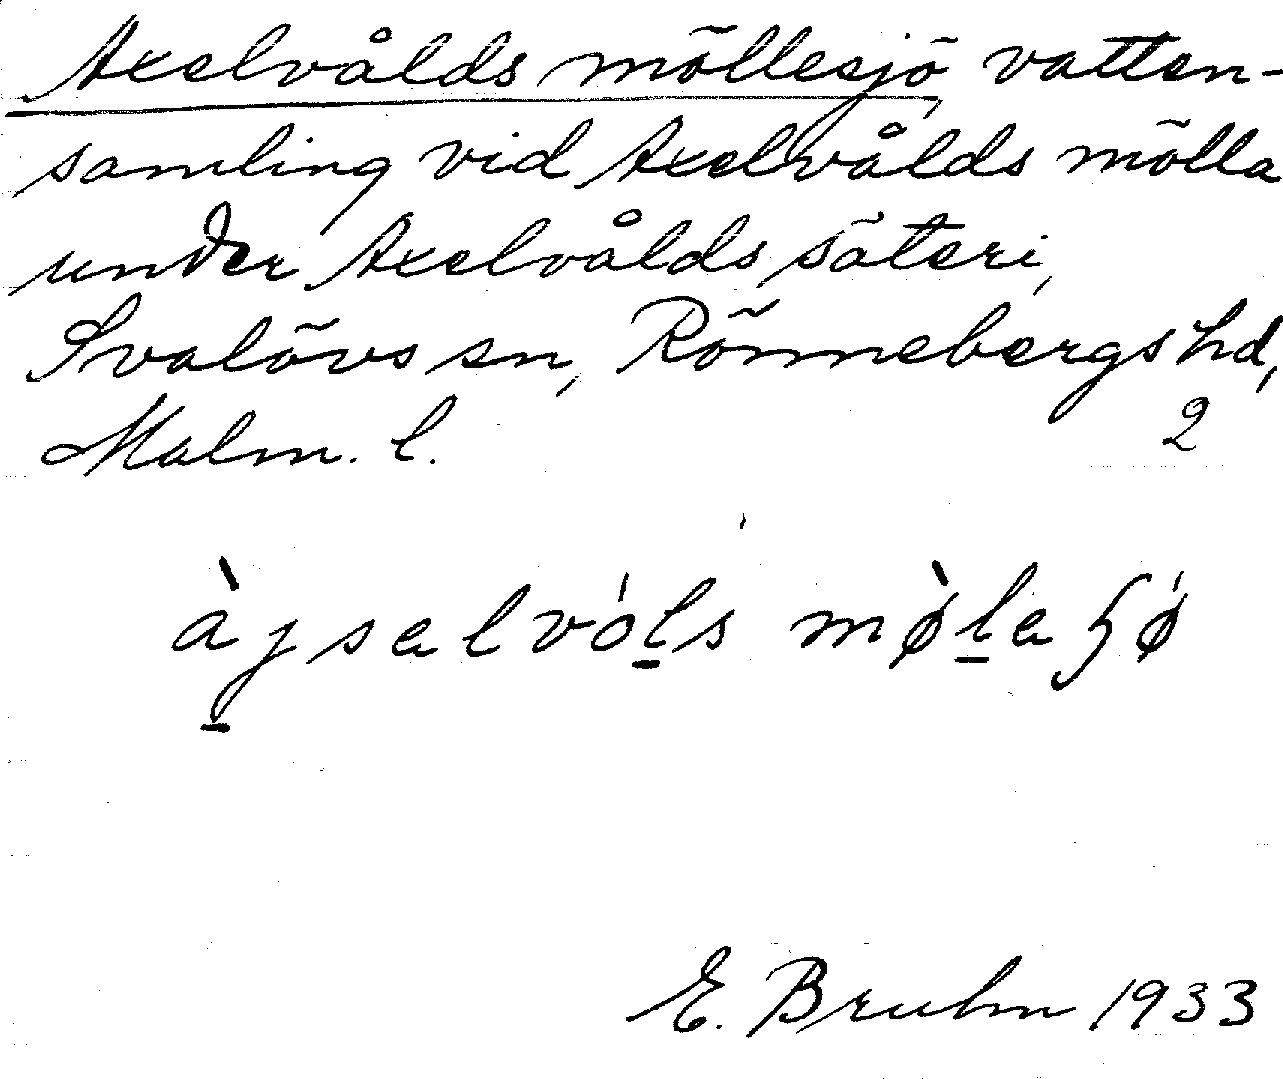 Axelvålds möllesjö, vatten-
samling vid Axelvålds mölla
under Axelvålds säteri,
Svalövs sn, Rönnebergs hd,
Malm. l. 2
àjselvóls mø̀le ɧǿ
E. Bruhn 1933